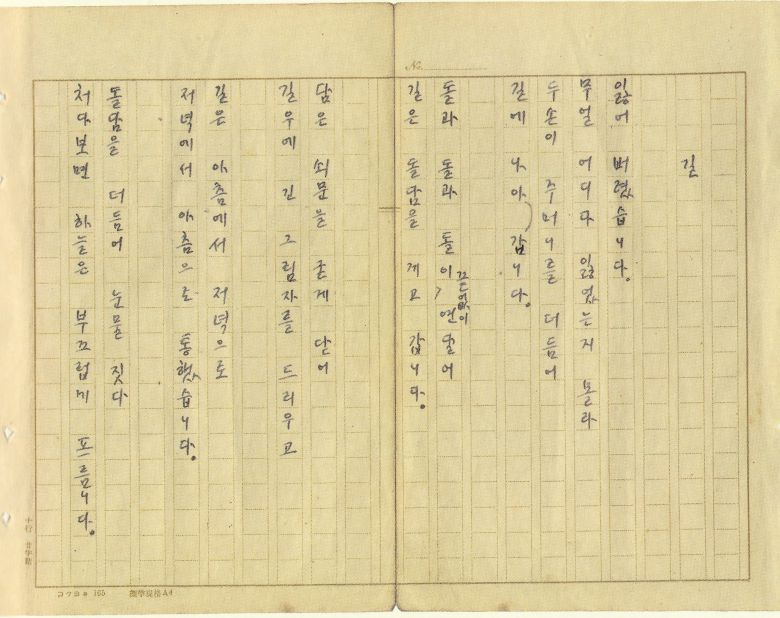 No.
길
잃어 버렸습니다.
무얼 어디다 잃었는지 몰라
두손이 주머니를 더듬어
길에 나아갑니다.
돌과 돌과 돌이 끝없이 연달어
길은 돌담을 게고 갑니다.
담은 쇠문을 굳게 닫어
길우에 긴 그림자를 드리우고
길은 아츰에서 저녁으로
저녁에서 아츰으로 통했습니다.
돌담을 더듬어 눈물 짓다
처다보면 하늘은 부끄럽게 프릅니다.
十行 廿字詰
コクヨ 165 標準規格A4